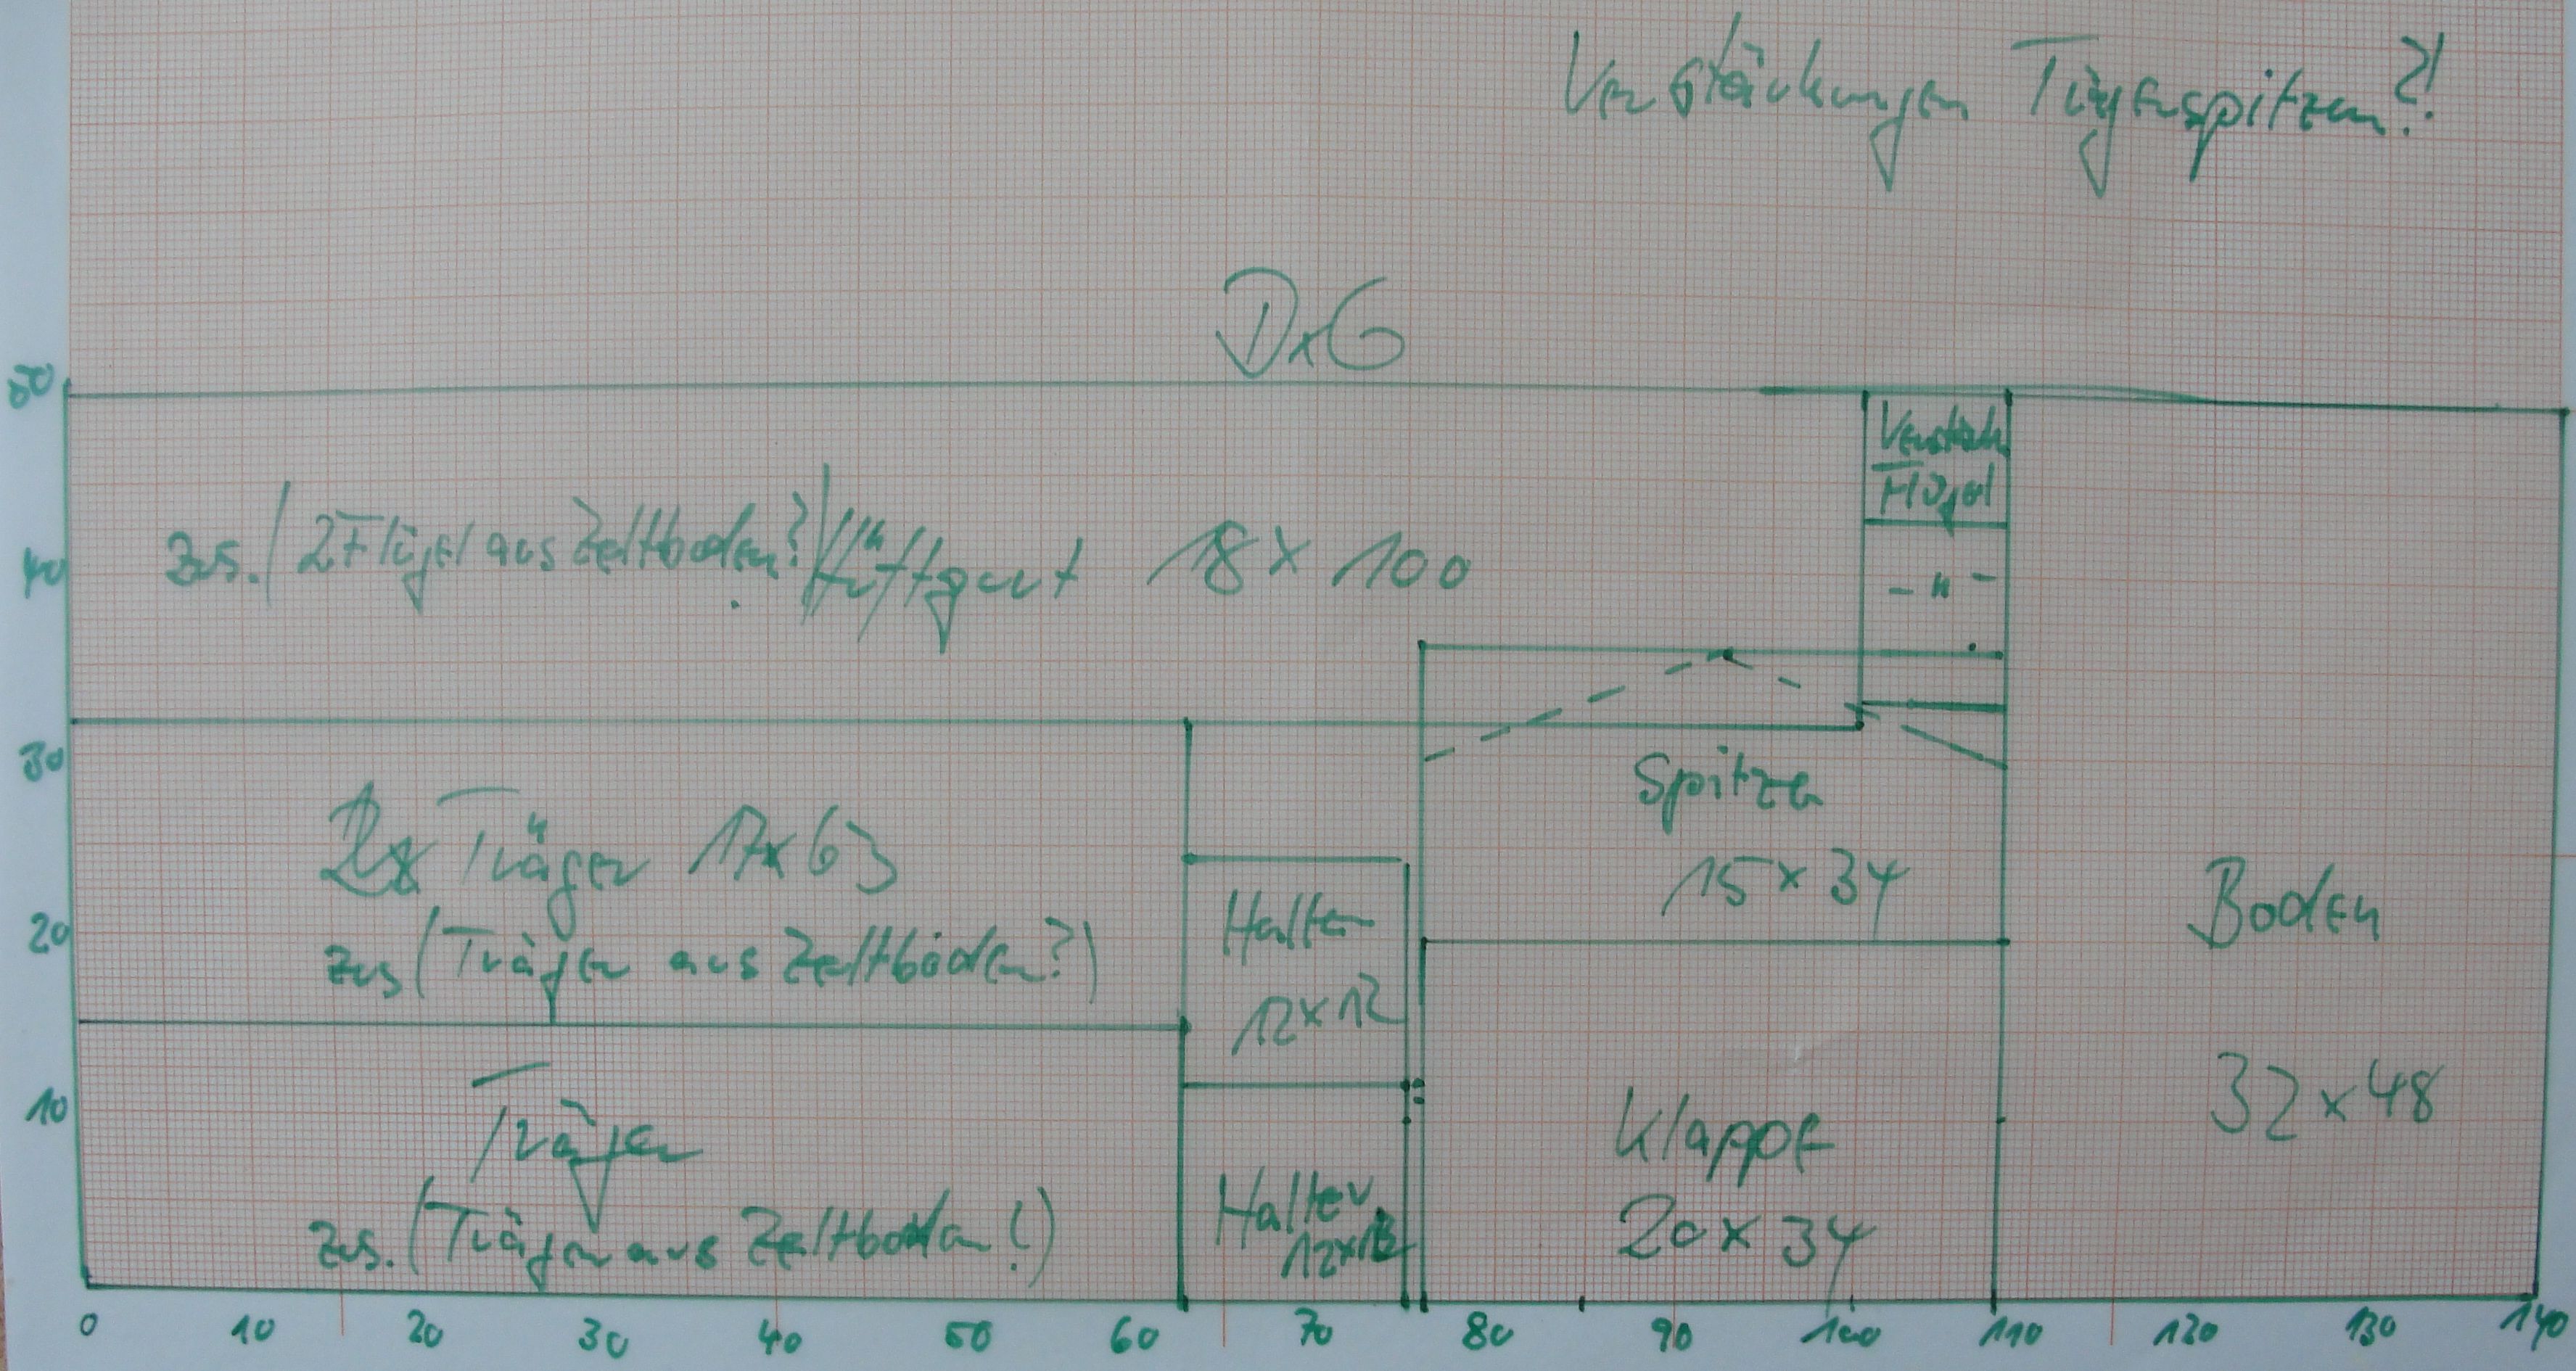 Verstärkungen Trägerspitzen?!
DxG
50
Verstärk
Flügel
zus. (2 Flügel aus Zeltboden?) Hüftgurt 18 x 100
40
- " -
30
Spitze
15 x 34
2x Träger 17x63
zus (Träger aus Zeltboden?)
20
Halter
12x12
Boden
32 x 48
10
Träger
zus. (Träger aus Zeltboden!)
Halter
12x12
Klappe
20 x 34
0 10 20 30 40 50 60 70 80 90 100 110 120 130 140